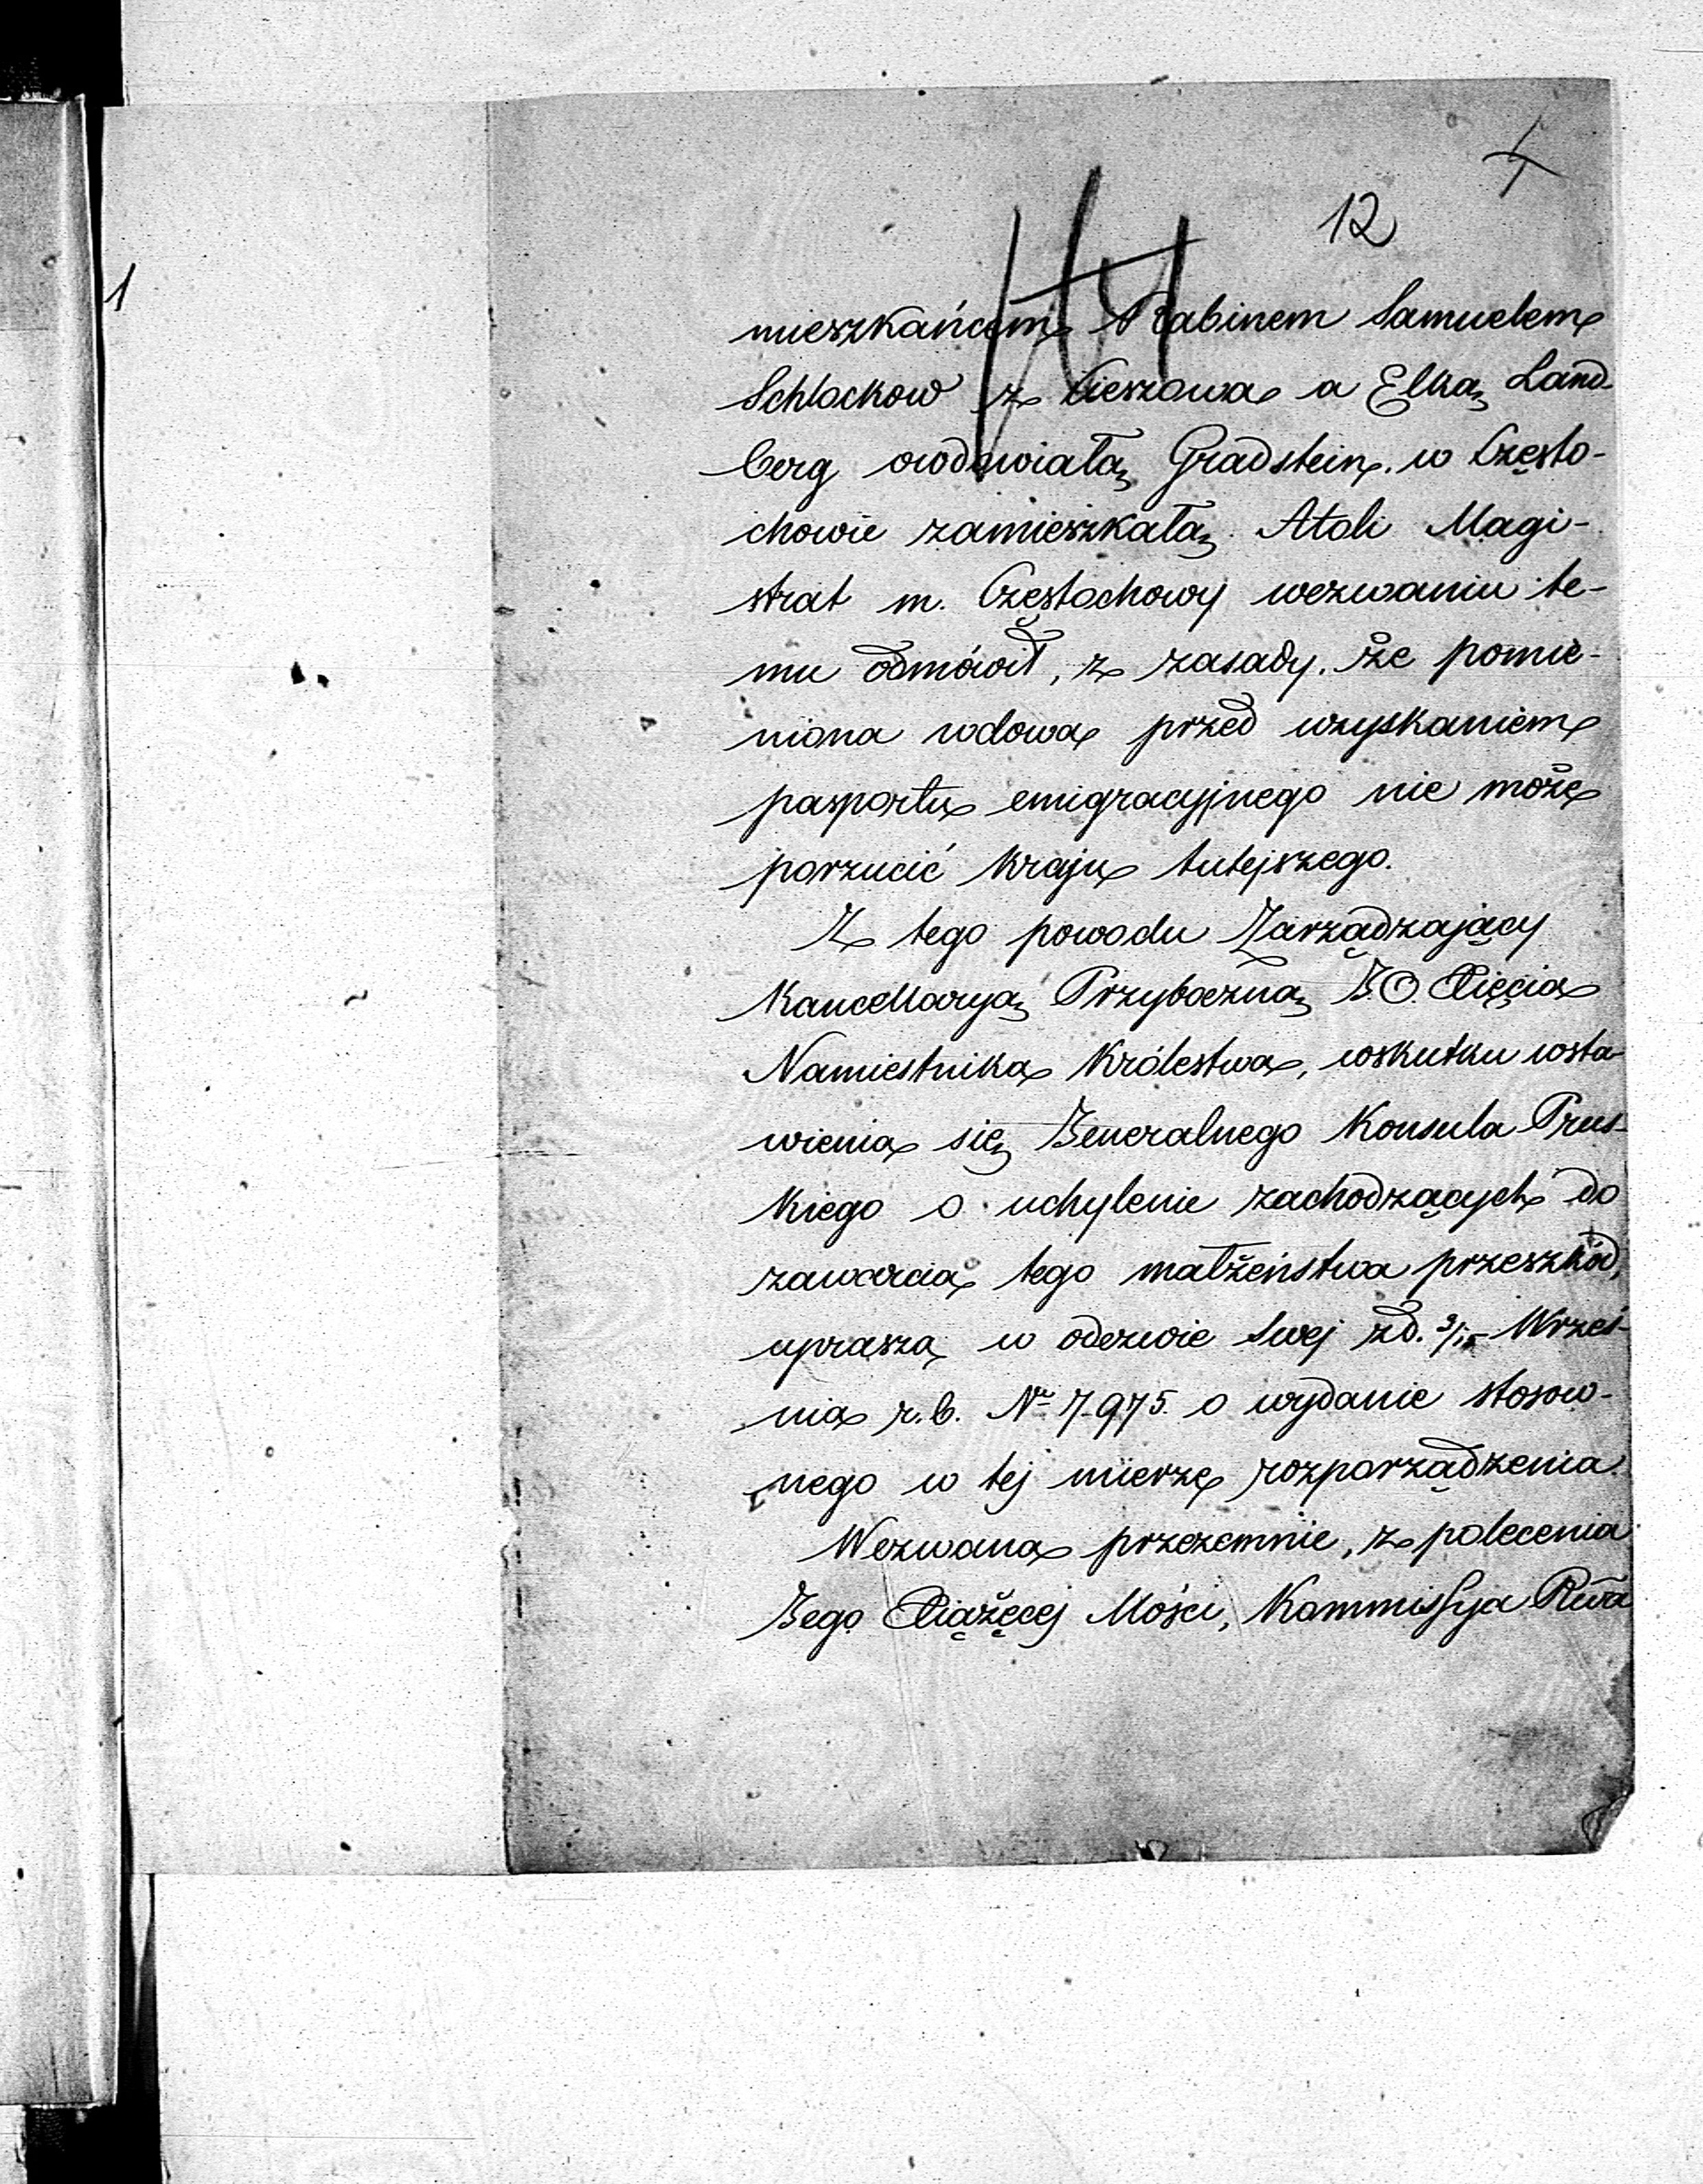 12
mieszkańcem Rabinem Samuelem
Schlockow z Cieszowa a Elką Land-
berg owdowiałą Gradstein, w Często-
chowie zamieszkałą. Atoli Magi-
strat m. Częstochowy wezwaniu te-
mu odmówił, z zasady, że pomie-
niona wdowa przed uzyskaniem
pasportu emigracyjnego nie może
porzucić kraju tutejszego.
Z tego powodu Zarządzający
Kancellaryą Przyboczną J.O. Xięcia
Namiestnika Królestwa, wskutku wsta-
wienia się Jeneralnego Konsula Prus-
kiego o uchylenie zachodzących do
zawarcia tego małżeństwa przeszkód,
uprasza w odezwie swej z d. 3/15 Wrześ-
nia r.b. Nr 7.975. o wydanie stosow-
nego w tej mierze rozporządzenia.
Wezwana przezemnie, z polecenia
Jego Xiążęcej Mości, Kommissyja Rwa